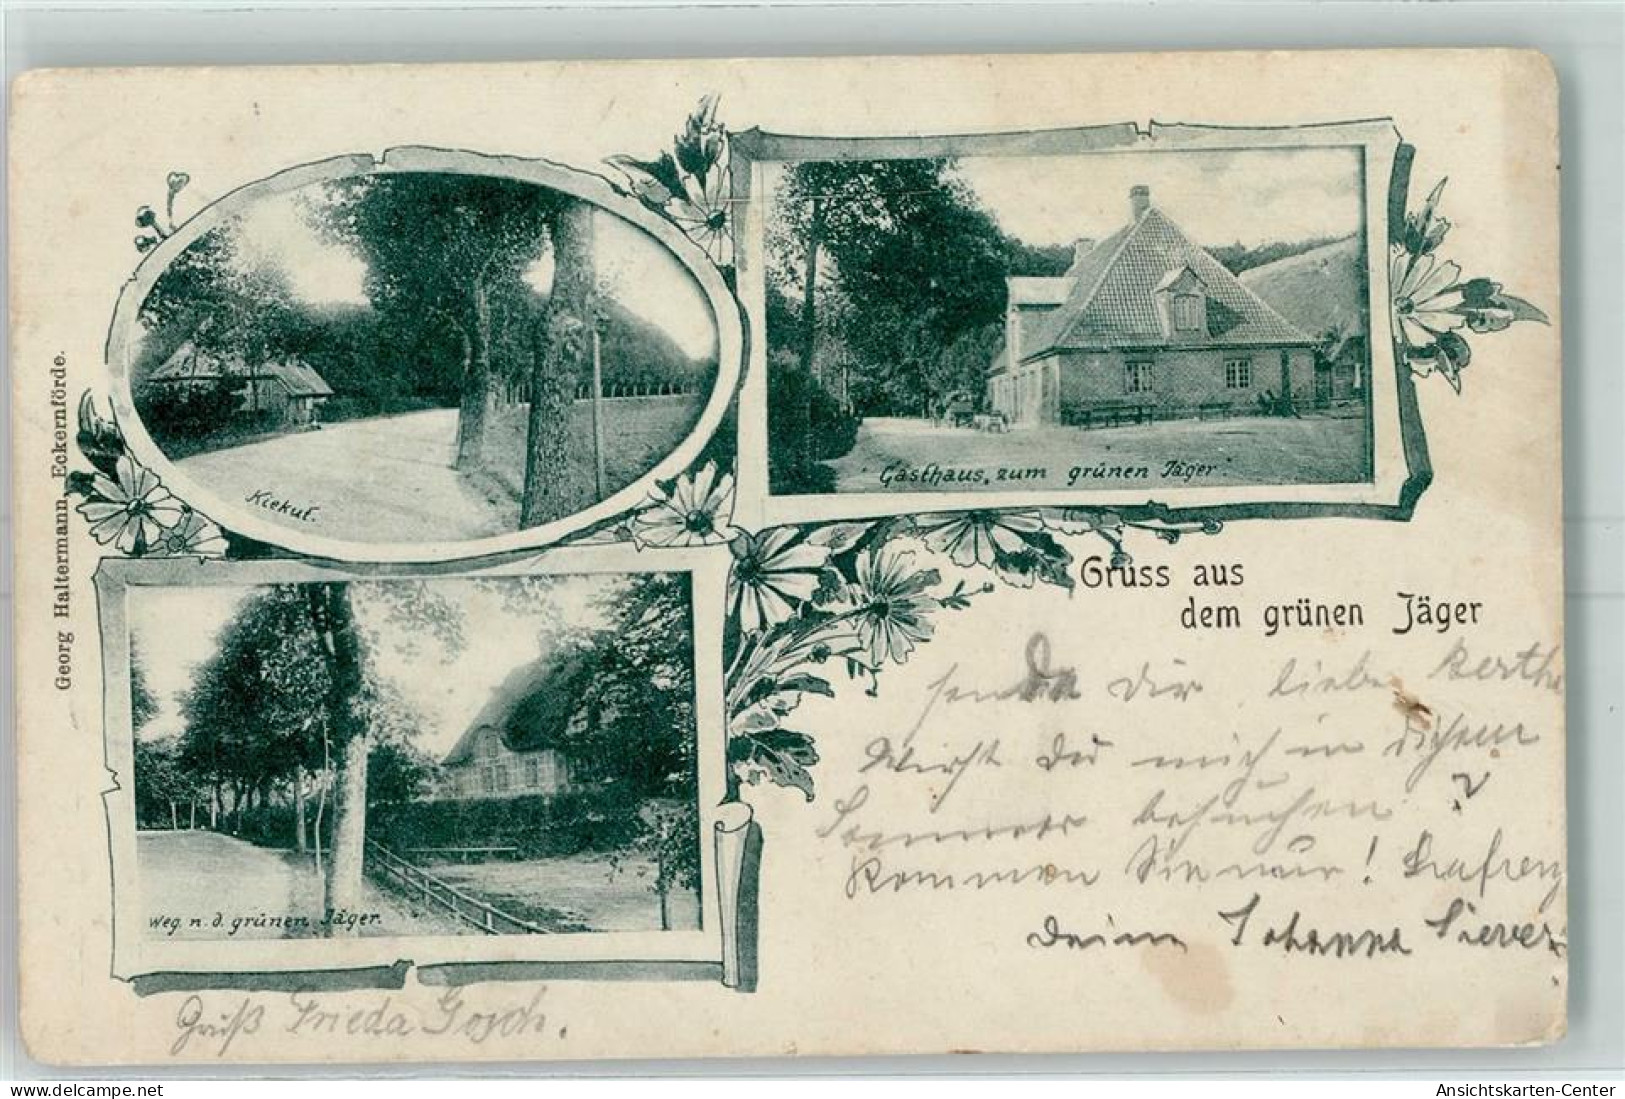 Georg Haltermann, Eckernförde.
Kiekut.
Gasthaus „zum grünen Jäger".
Weg n. d. grünen Jäger.
Gruss aus
dem grünen Jäger
sendet dir liebe Berth
Wirst du mich in diesem
Sommer besuchen?
Kommen Sie nur!
Deine Johanna Siever
Gruß Frieda Gosch.
www.delcampe.net
Ansichtskarten-Center